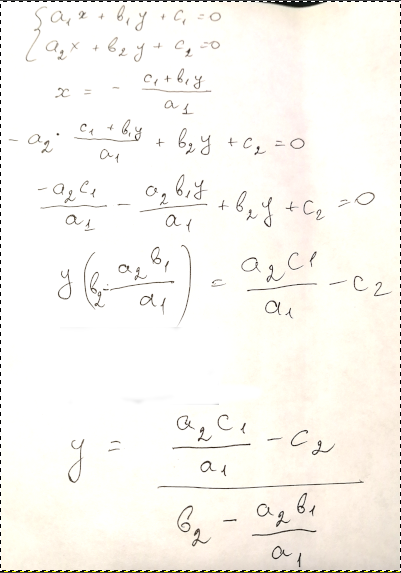 { a₁x + b₁y + c₁ = 0
a₂x + b₂y + c₂ = 0
x = - (c₁ + b₁y)/a₁
- a₂ · (c₁ + b₁y)/a₁ + b₂y + c₂ = 0
(-a₂c₁)/a₁ - (a₂b₁y)/a₁ + b₂y + c₂ = 0
y (b₂ - (a₂b₁)/a₁) = (a₂c₁)/a₁ - c₂
y = ((a₂c₁)/a₁ - c₂)/(b₂ - (a₂b₁)/a₁)